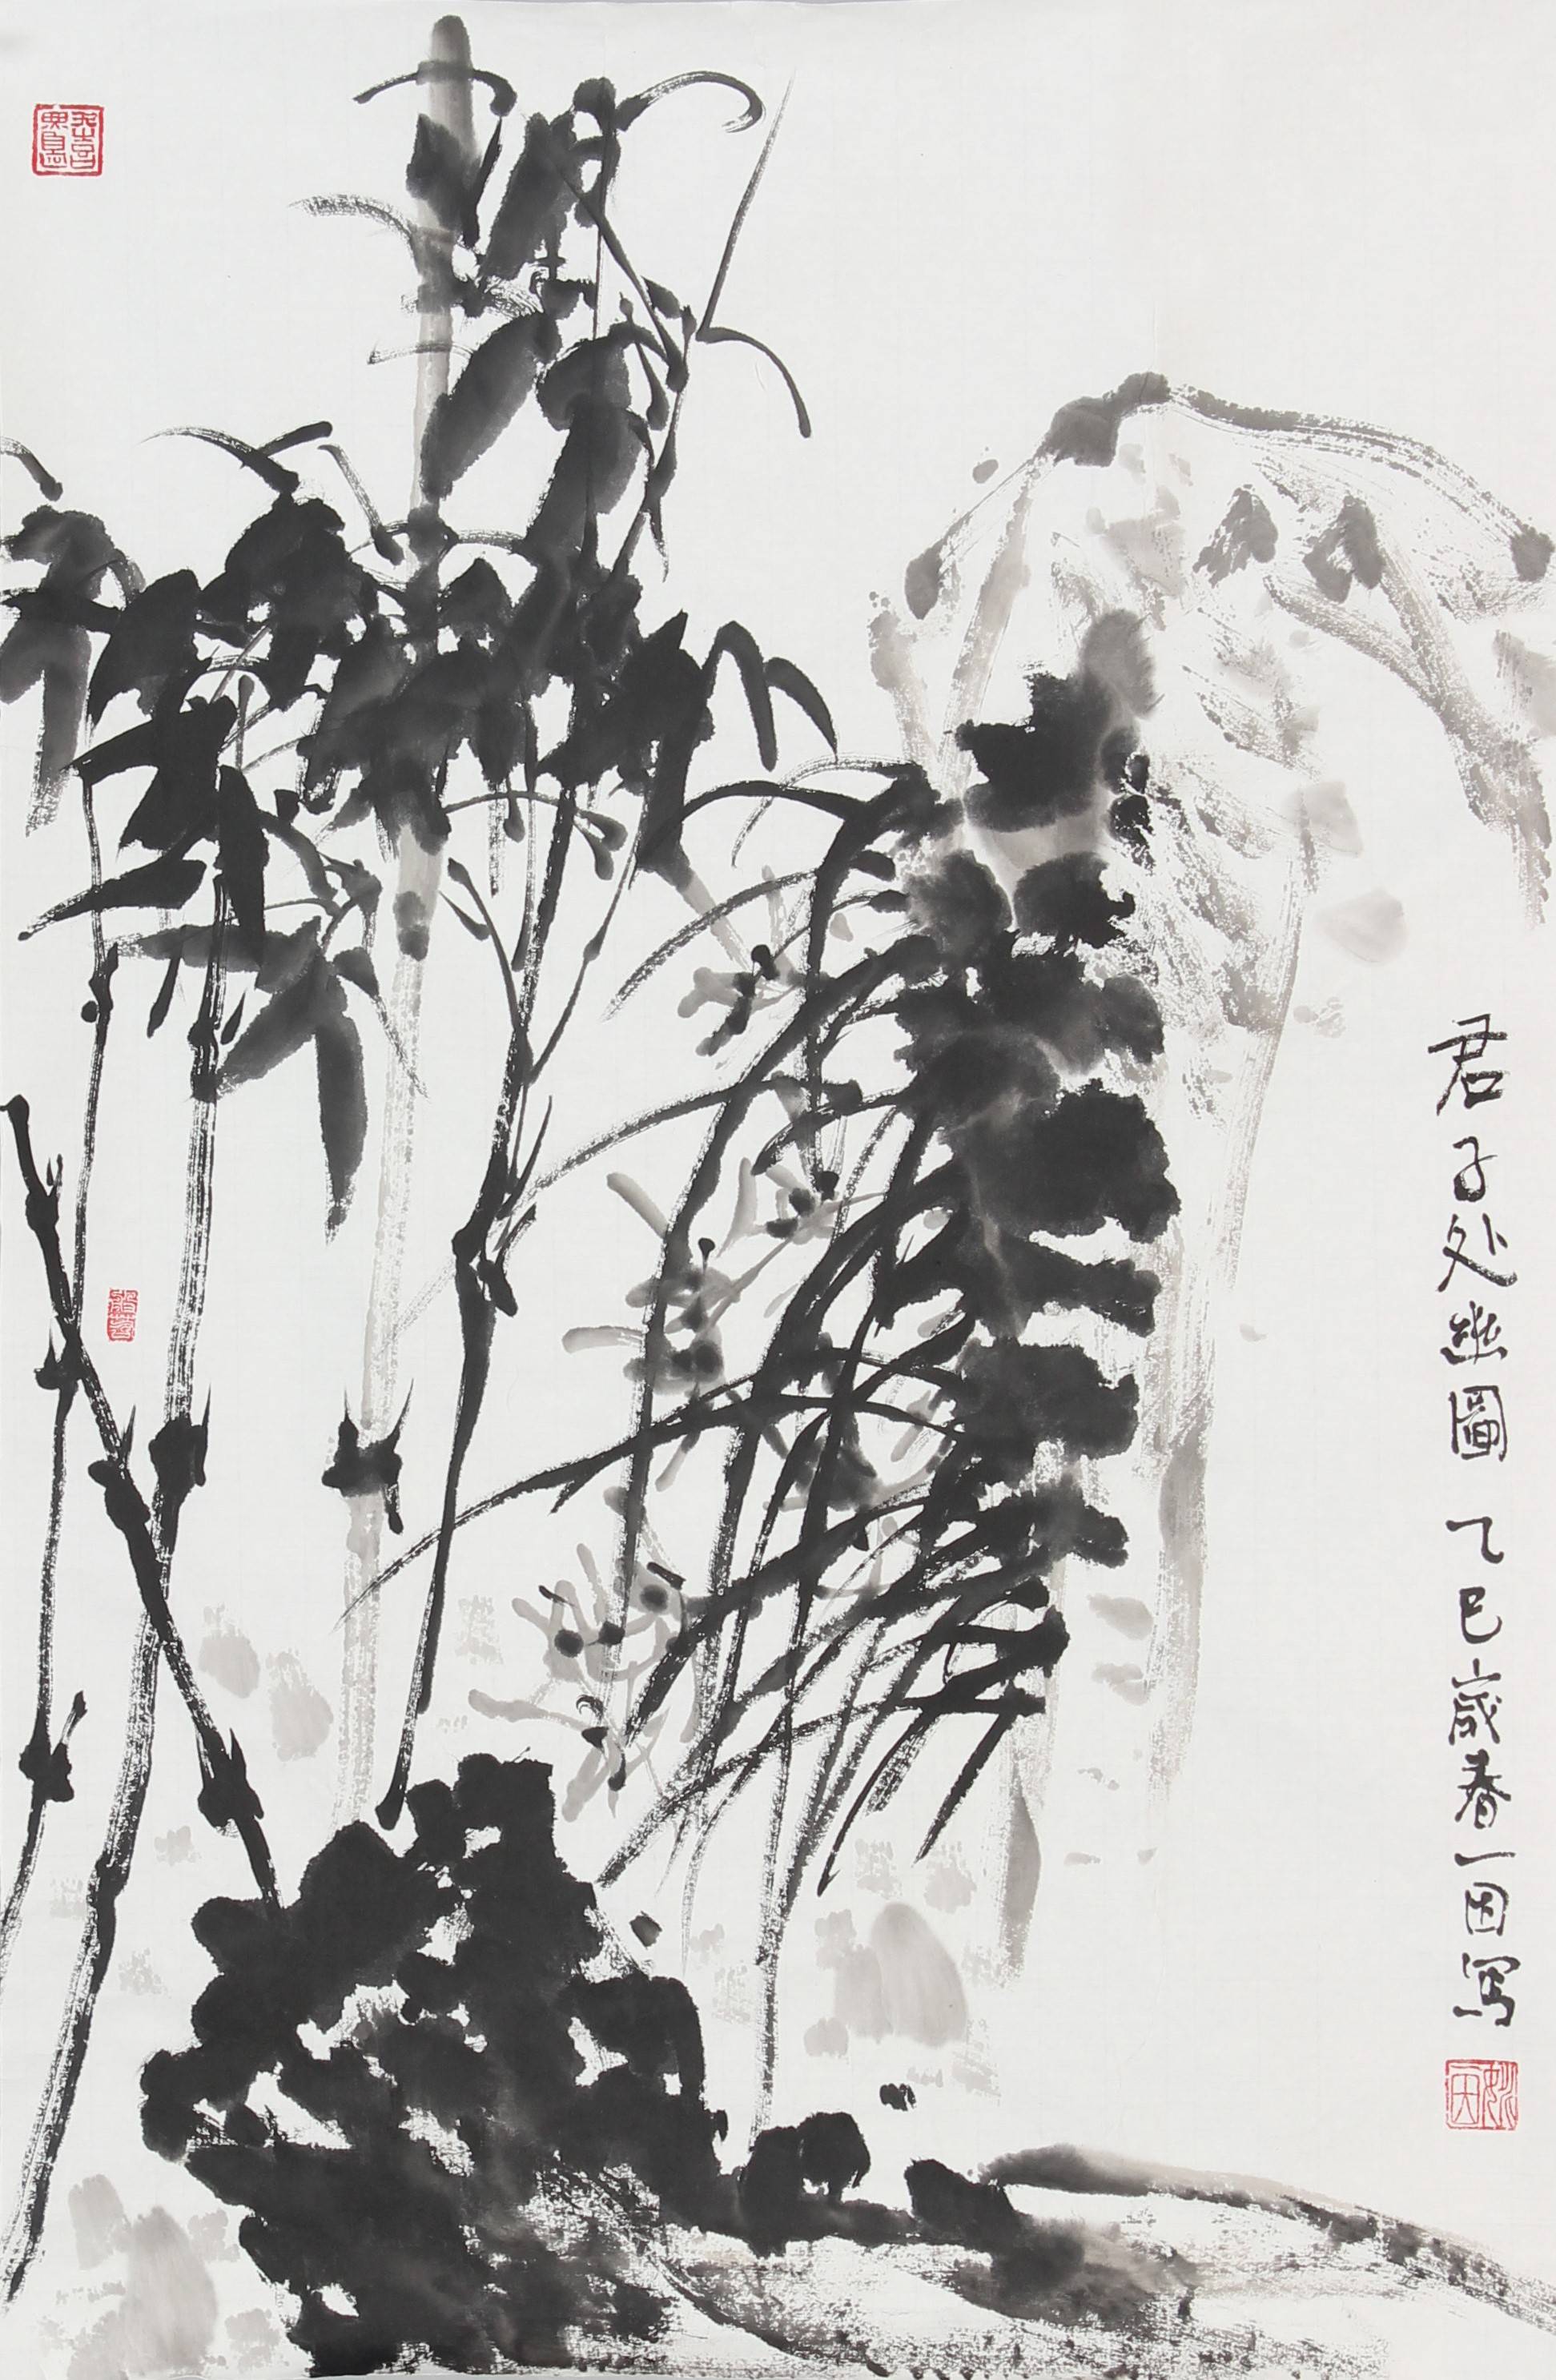 君子处幽圖 乙巳歲春一因寫